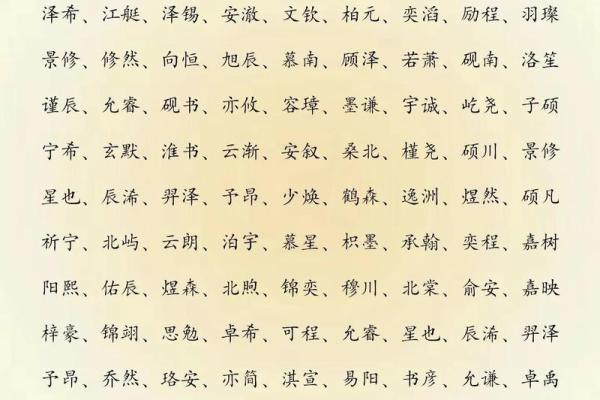 泽希、江艇、泽锡、安澈、文钦、柏元、奕滔、励程、羽璨
景修、修然、向恒、旭辰、慕南、顾泽、若萧、砚南、洛笙
谨辰、允睿、砚书、亦攸、容璋、墨谦、宇诚、屹尧、子硕
宁希、玄默、淮书、云渐、安叙、桑北、槿尧、硕川、景修
星也、辰浠、羿泽、予昂、少焕、鹤森、逸洲、煜然、硕凡
祈宁、北屿、云朗、泊宇、慕星、枳墨、承翰、奕程、嘉树
阳熙、佑辰、煜森、北煦、锦奕、穆川、北棠、俞安、嘉映
梓豪、锦翊、思勉、卓希、可程、允睿、星也、辰浠、羿泽
予昂、乔然、珞安、亦简、淇宣、易阳、书彦、允谦、卓禹